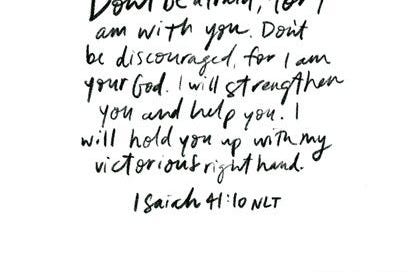 Don't be afraid, for I
am with you. Don't
be discouraged, for I am
your God. I will strengthen
you and help you. I
will hold you up with my
victorious right hand.
Isaiah 41:10 NLT